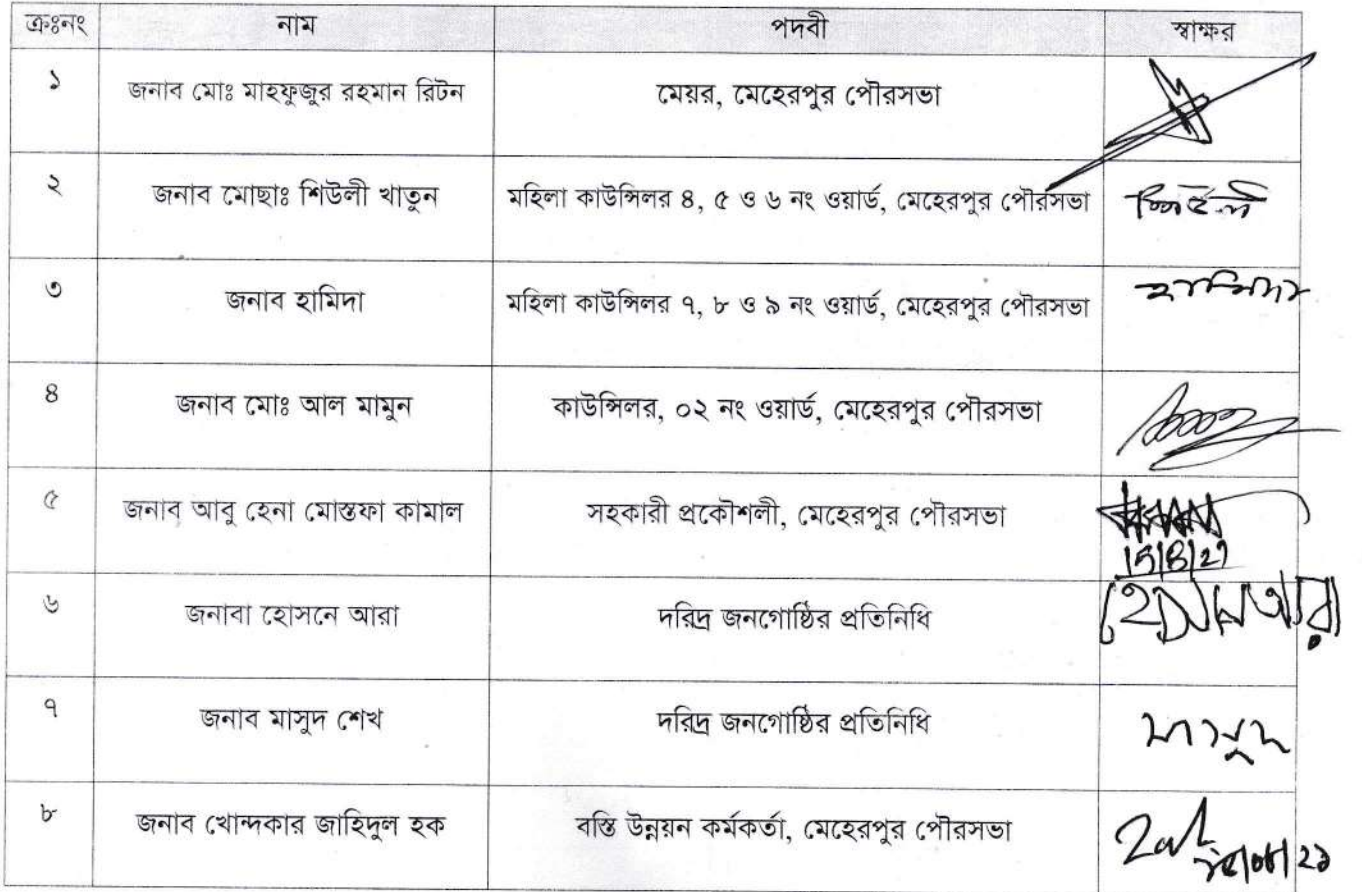 ক্রঃনং নাম পদবী স্বাক্ষর
১ জনাব মোঃ মাহফুজুর রহমান রিটন মেয়র, মেহেরপুর পৌরসভা
২ জনাব মোছাঃ শিউলী খাতুন মহিলা কাউন্সিলর ৪, ৫ ও ৬ নং ওয়ার্ড, মেহেরপুর পৌরসভা শিউলী
৩ জনাব হামিদা মহিলা কাউন্সিলর ৭, ৮ ও ৯ নং ওয়ার্ড, মেহেরপুর পৌরসভা হামিদা
৪ জনাব মোঃ আল মামুন কাউন্সিলর, ০২ নং ওয়ার্ড, মেহেরপুর পৌরসভা
৫ জনাব আবু হেনা মোস্তফা কামাল সহকারী প্রকৌশলী, মেহেরপুর পৌরসভা
৬ জনাবা হোসনে আরা দরিদ্র জনগোষ্ঠির প্রতিনিধি
৭ জনাব মাসুদ শেখ দরিদ্র জনগোষ্ঠির প্রতিনিধি মাসুদ
৮ জনাব খোন্দকার জাহিদুল হক বস্তি উন্নয়ন কর্মকর্তা, মেহেরপুর পৌরসভা